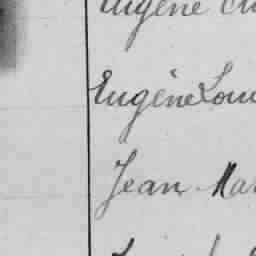 Eugène
Eugène Lou
Jean Mar